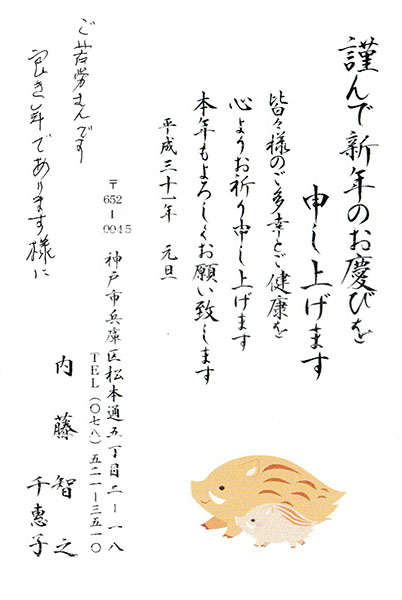 謹んで新年のお慶びを
申し上げます
皆々様のご多幸とご健康を
心よりお祈り申し上げます
本年もよろしくお願い致します
平成三十一年 元旦
〒652-0045
神戸市兵庫区松本通五丁目二-一八
TEL(〇七八)五二一-三五一〇
内藤 智之
千恵子
ご苦労さんです
良き年であります様に